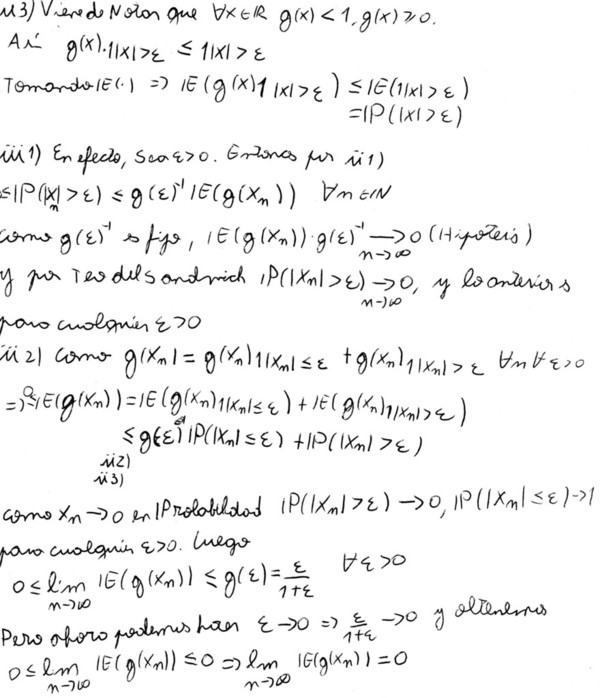 ii3) Viene de Notar que ∀x∈ℝ g(x)<1, g(x)≥0.
Así g(x)·1|x|>ε ≤ 1|x|>ε
Tomando IE(·) => IE(g(x)1|x|>ε) ≤ IE(1|x|>ε)
=IP(|x|>ε)
iii1) En efecto, Sea ε>0. Entonces por ii1)
≤IP(|X_n|>ε) ≤ g(ε)⁻¹ IE(g(X_n)) ∀n∈IN
Como g(ε)⁻¹ es fijo, IE(g(X_n))·g(ε)⁻¹ →0 (Hipótesis)
n→∞
y por Teo del Sandwich IP(|X_n|>ε)→0, y lo anterior es
n→∞
para cualquier ε>0
iii2) Como g(X_n)=g(X_n)1|X_n|≤ε +g(X_n)1|X_n|>ε ∀n ∀ε>0
=> 0≤IE(g(X_n))=IE(g(X_n)1|X_n|≤ε)+IE(g(X_n)1|X_n|>ε)
≤g(ε)IP(|X_n|≤ε)+IP(|X_n|>ε)
ii2)
ii3)
Como X_n→0 en IProbabilidad IP(|X_n|>ε)→0, IP(|X_n|≤ε)→1
para cualquier ε>0. Luego
0≤lim IE(g(X_n))≤g(ε)=ε/(1+ε) ∀ε>0
n→∞
Pero ahora podemos hacer ε→0 => ε/(1+ε)→0 y obtenemos
0≤lim IE(g(X_n))≤0 => lim IE(g(X_n))=0
n→∞ n→∞